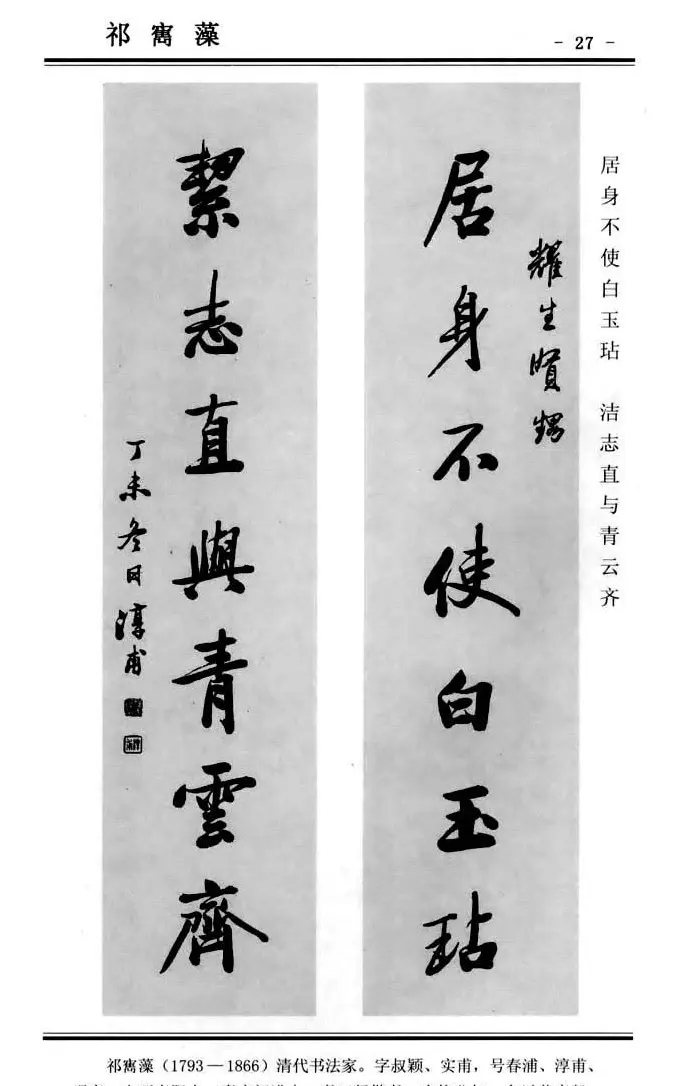 祁寯藻
- 27 -
居身不使白玉玷　洁志直与青云齐
耀生贤甥
居身不使白玉玷
絜志直與青雲齊
丁未冬日淳甫
祁寯藻（1793—1866）清代书法家。字叔颖、实甫，号春浦、淳甫、